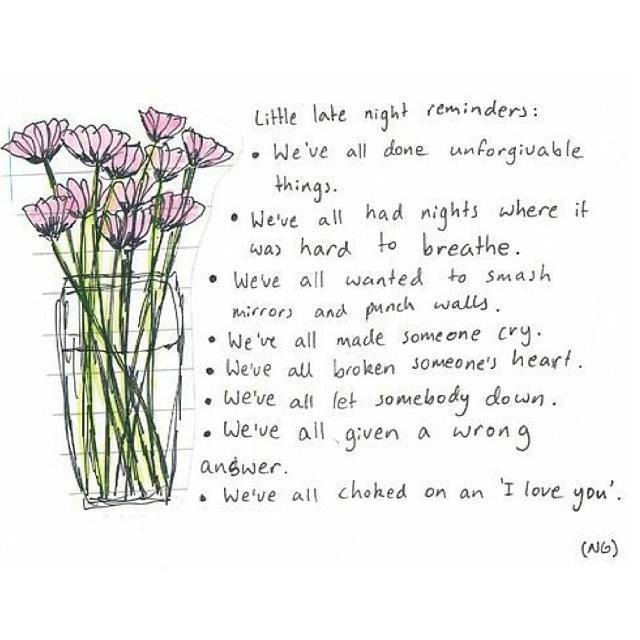 Little late night reminders:
• We've all done unforgivable
things.
• We've all had nights where it
was hard to breathe.
• We've all wanted to smash
mirrors and punch walls.
• We've all made someone cry.
• We've all broken someone's heart.
• We've all let somebody down.
• We've all given a wrong
answer.
• We've all choked on an 'I love you'.
(NG)